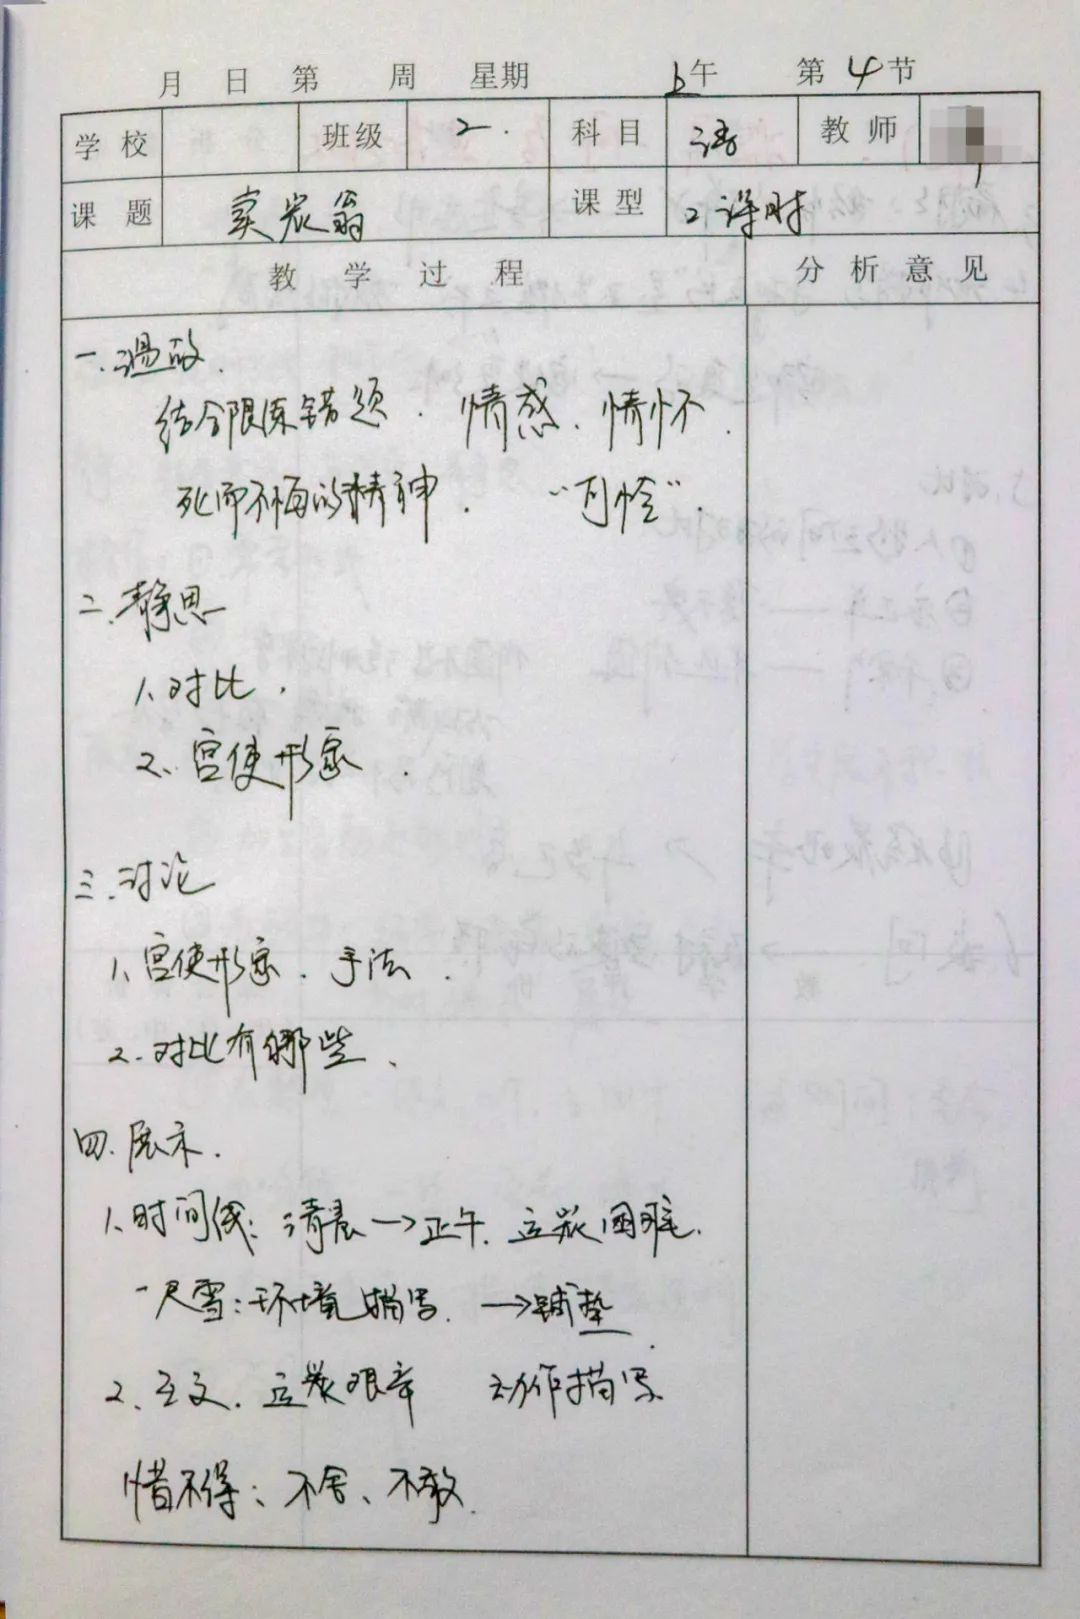 月 日 第 周 星期 上午 第4节
学校 班级 2. 科目 语 教师
课题 卖炭翁 课型 2课时
教学过程 分析意见
一.温故.
结合限练错题. 情感、情怀.
死而不悔的精神. “可怜”.
二.静思
1.对比.
2.宫使形象.
三.讨论
1.宫使形象.手法.
2.对比有哪些.
四.展示.
1.时间线:清晨→正午.运炭困难.
一尺雪:环境描写.→铺垫.
2.至文.运炭艰辛 动作描写
惜不得:不舍、不敢.